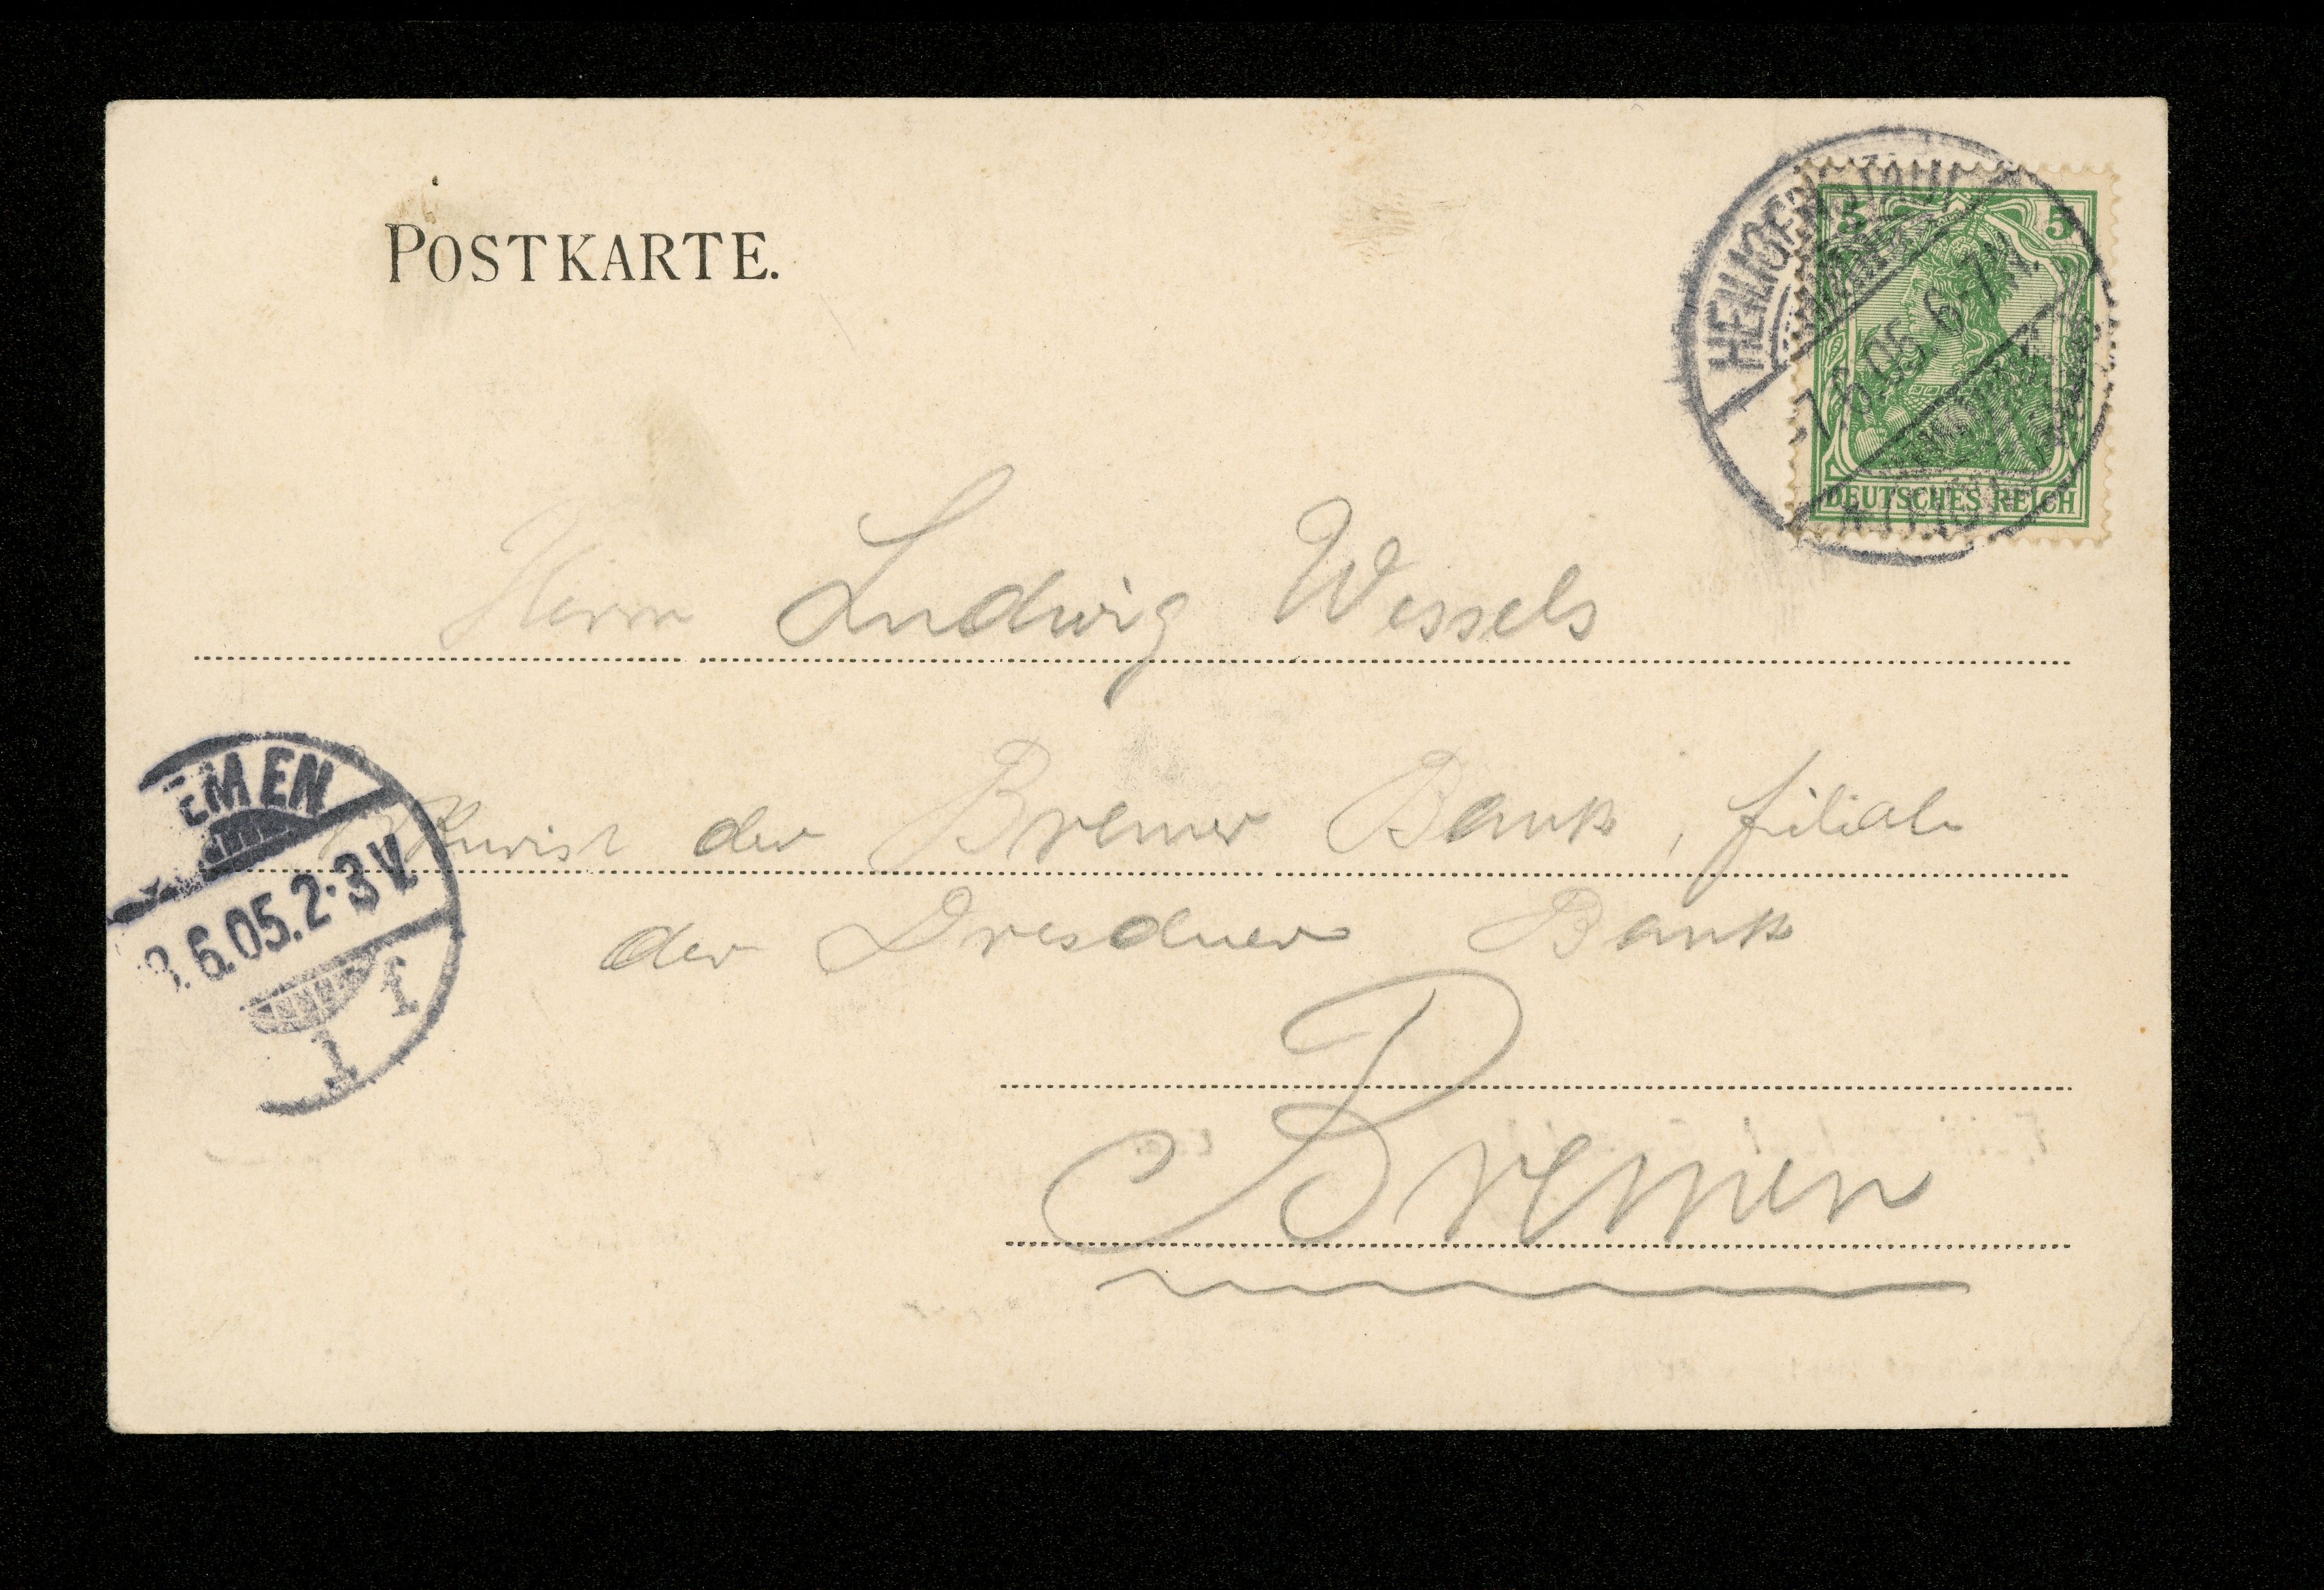 POSTKARTE.
5 5
7.6.05. 6-7N.
DEUTSCHES REICH
Herrn Ludwig Wessels
der Bremer Bank, Filiale
der Dresdner Bank
Bremen
EMEN
6.05.2-3V.
1 f